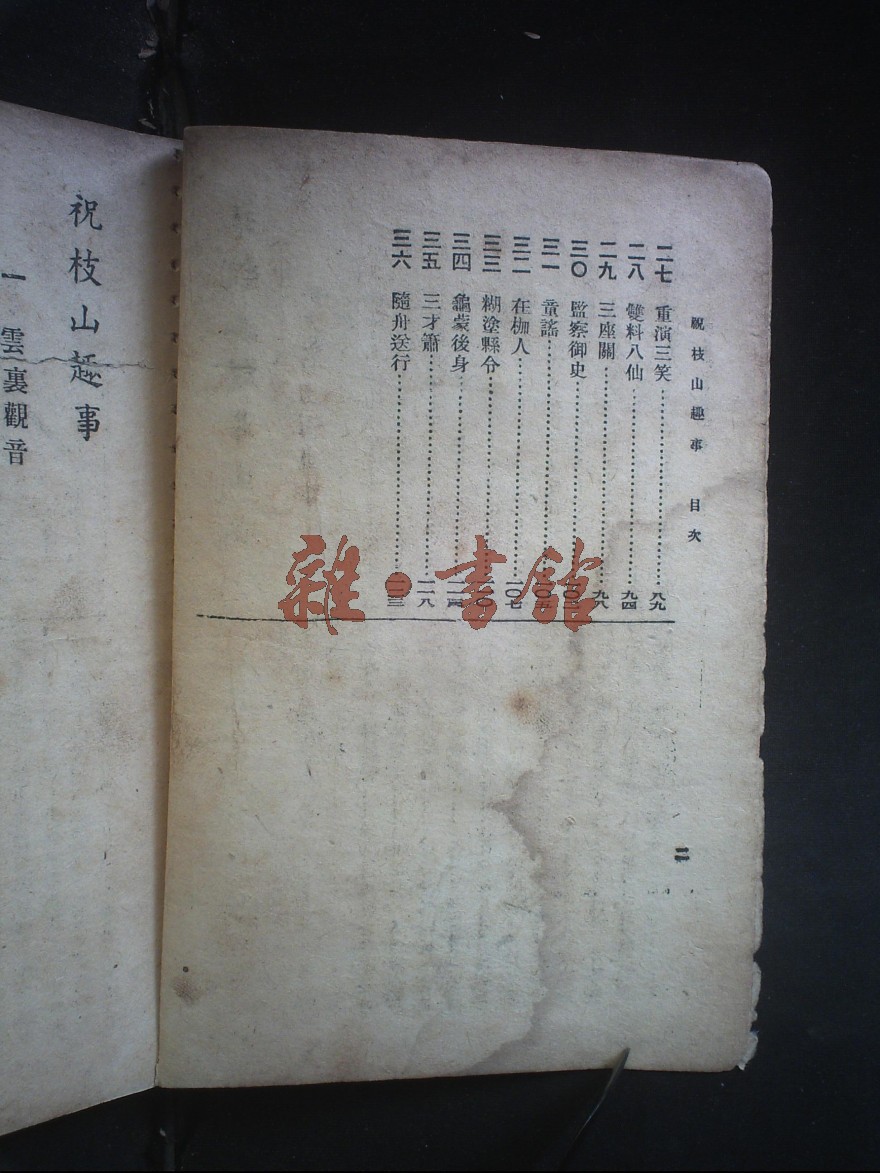 祝枝山趣事 目次
二七 重演三笑 八九
二八 雙料八仙 九四
二九 三座關 九八
三〇 監察御史
三一 童謠
三二 在枷人 一〇七
三三 糊塗縣令
三四 龜蒙後身
三五 三才簫 一一八
三六 隨舟送行
二
祝枝山趣事
一 雲裏觀音
雜·書館